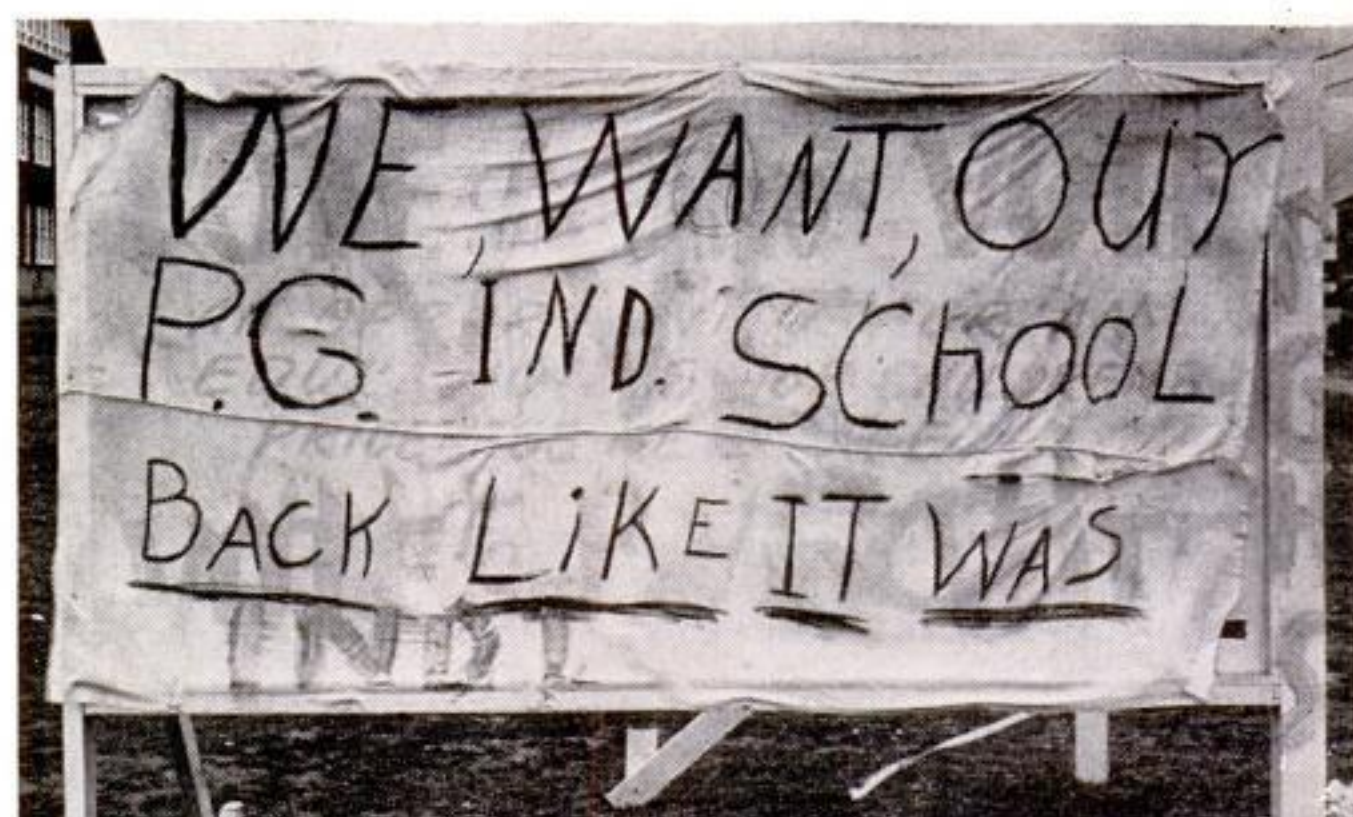 WE, WANT, OUr
P.G. IND. SChOOL
BACK LiKE IT WAS